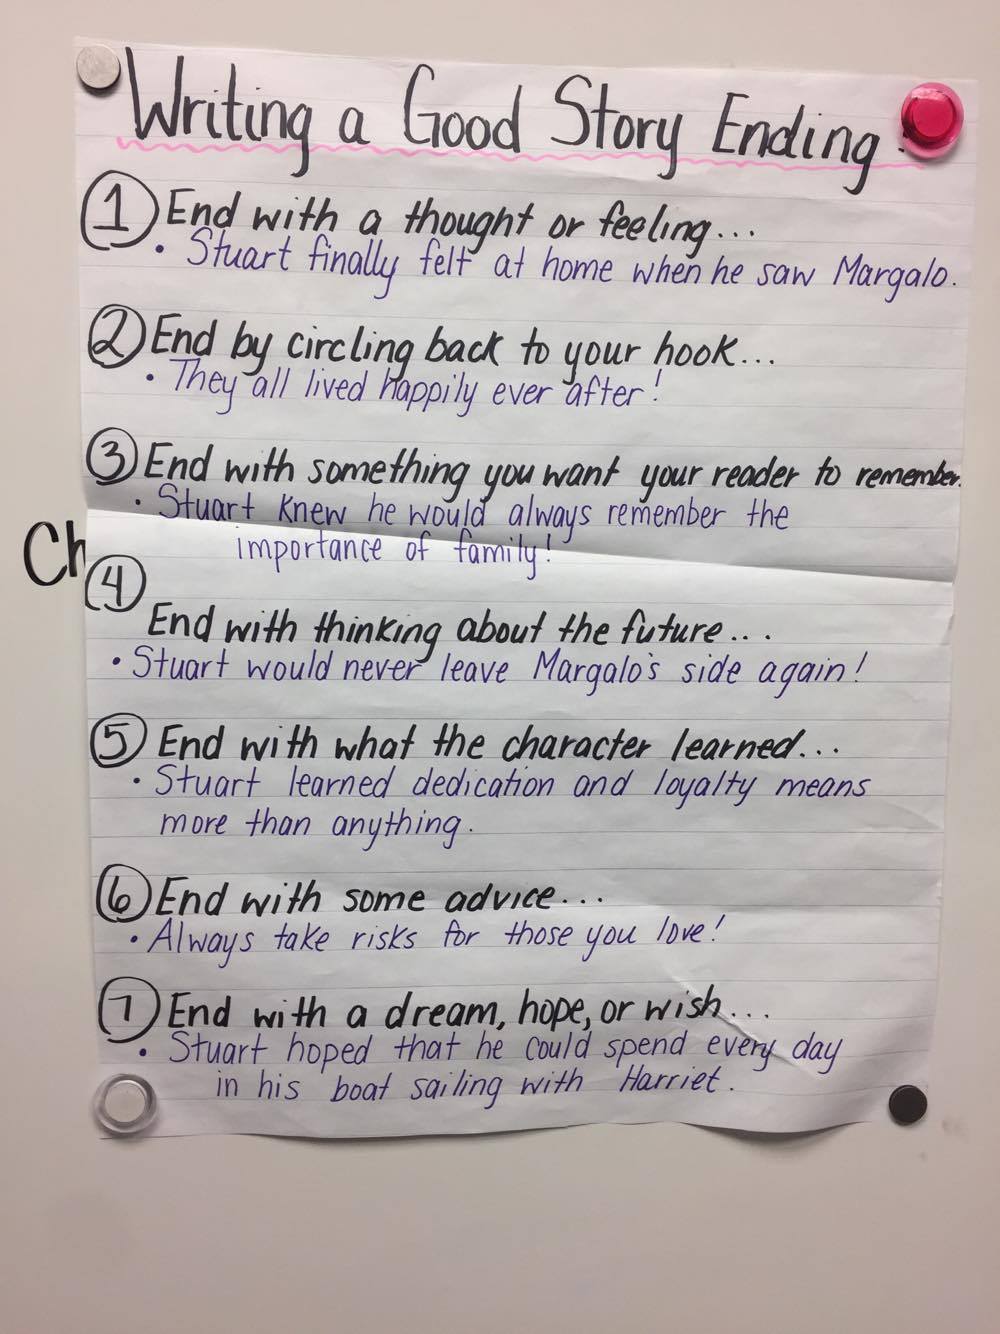 Writing a Good Story Ending.
1 End with a thought or feeling...
• Stuart finally felt at home when he saw Margalo.
2 End by circling back to your hook...
• They all lived happily ever after!
3 End with something you want your reader to remember.
• Stuart knew he would always remember the
importance of family!
Ch
4
End with thinking about the future...
• Stuart would never leave Margalo's side again!
5 End with what the character learned...
• Stuart learned dedication and loyalty means
more than anything.
6 End with some advice...
• Always take risks for those you love!
7 End with a dream, hope, or wish...
• Stuart hoped that he could spend every day
in his boat sailing with Harriet.